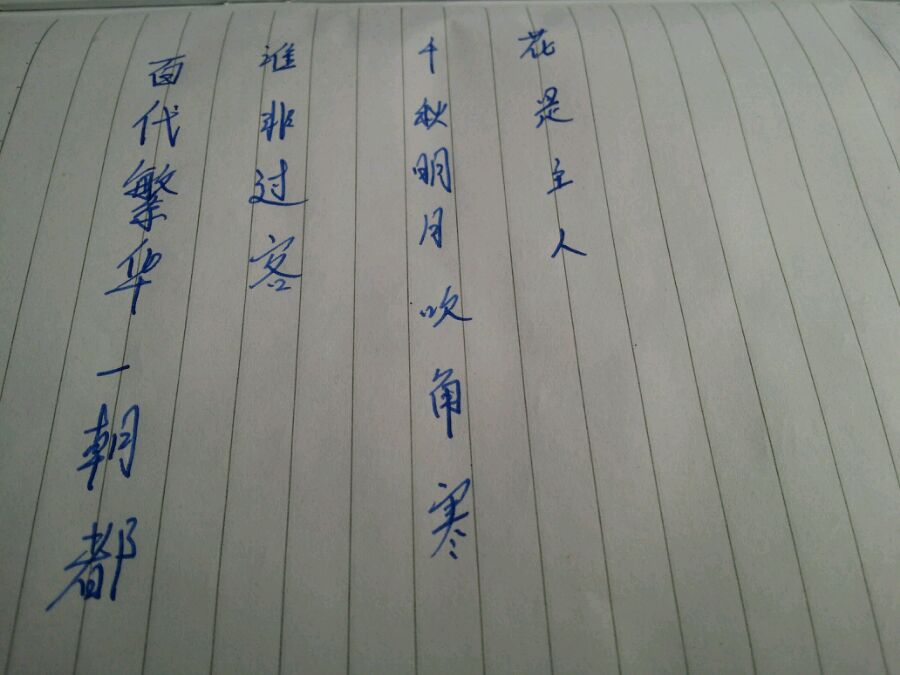 百代繁华一朝都
谁非过客
千秋明月吹角寒
花是主人